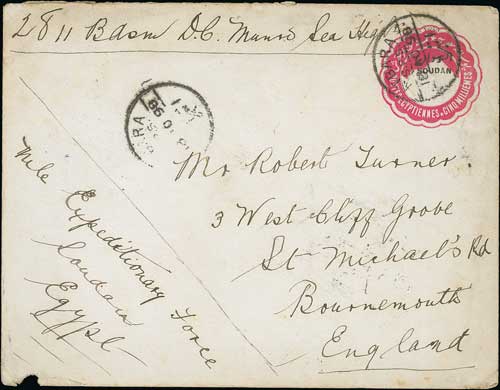 2811 Bdsm D.C. Munro Sea
SOUDAN
EGYPTIENNES CINQ MILLIEMES
Mr Robert Turner
3 West Cliff Grove
St Michael's Rd
Bournemouth
England
Nile Expeditionary Force
Soudan
Egypt